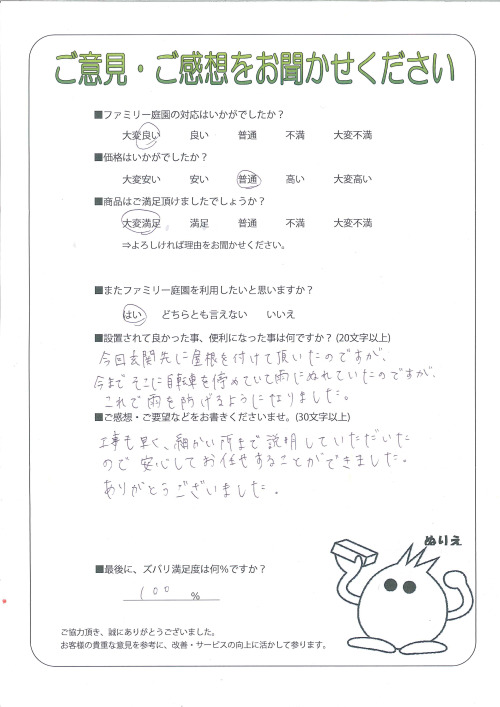 ご意見・ご感想をお聞かせください
■ファミリー庭園の対応はいかがでしたか？
大変良い 良い 普通 不満 大変不満
■価格はいかがでしたか？
大変安い 安い 普通 高い 大変高い
■商品はご満足頂けましたでしょうか？
大変満足 満足 普通 不満 大変不満
⇒よろしければ理由をお聞かせください。
■またファミリー庭園を利用したいと思いますか？
はい どちらとも言えない いいえ
■設置されて良かった事、便利になった事は何ですか？(20文字以上)
今回玄関先に屋根を付けて頂いたのですが、
今までそこに自転車を停めていて雨にぬれていたのですが、
これで雨を防げるようになりました。
■ご感想・ご要望などをお書きくださいませ。(30文字以上)
工事も早く、細かい所まで説明していただいた
ので安心してお任せすることができました。
ありがとうございました。
ぬりえ
■最後に、ズバリ満足度は何％ですか？
100 ％
ご協力頂き、誠にありがとうございました。
お客様の貴重な意見を参考に、改善・サービスの向上に活かして参ります。